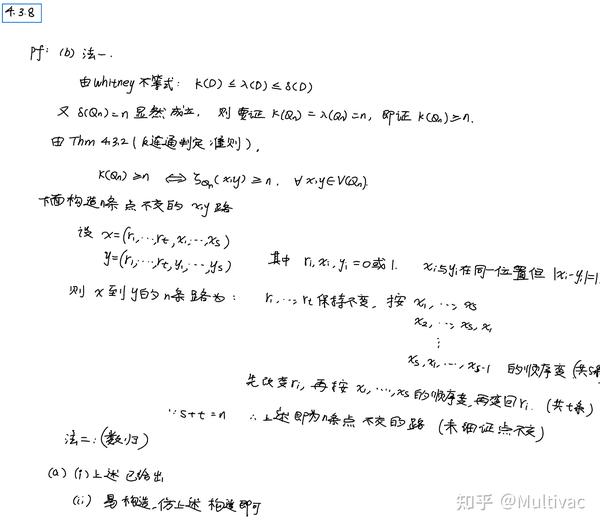 4.3.8
pf: (b) 法一.
由whitney不等式: κ(D) ≤ λ(D) ≤ δ(D)
又 δ(Qn)=n 显然成立, 则要证 κ(Qn)=λ(Qn)=n, 即证 κ(Qn)≥n.
由 Thm 4.3.2 (k连通判定准则),
κ(Qn) ≥ n ⟺ ζQn(x,y) ≥ n, ∀x,y∈V(Qn).
下面构造n条点不交的 x,y 路
设 x=(r1,…,rt,x1,…,xs)
y=(r1,…,rt,y1,…,ys) 其中 ri,xi,yi=0或1. xi与yi在同一位置但 |xi-yi|=1.
则 x到y的n条路为: r1,…,rt保持不变, 按 x1,…,xs
x2,…,xs,x1
⋮
xs,x1,…,xs-1 的顺序变 (共s条
先改变ri, 再按 x1,…,xs的顺序变, 再变回ri. (共t条)
∵ s+t=n ∴上述即为n条点不交的路 (未细证点不交)
法二: (数归)
(a) (i) 上述已给出
(ii) 易构造, 仿上述构造即可
知乎 @Multivac